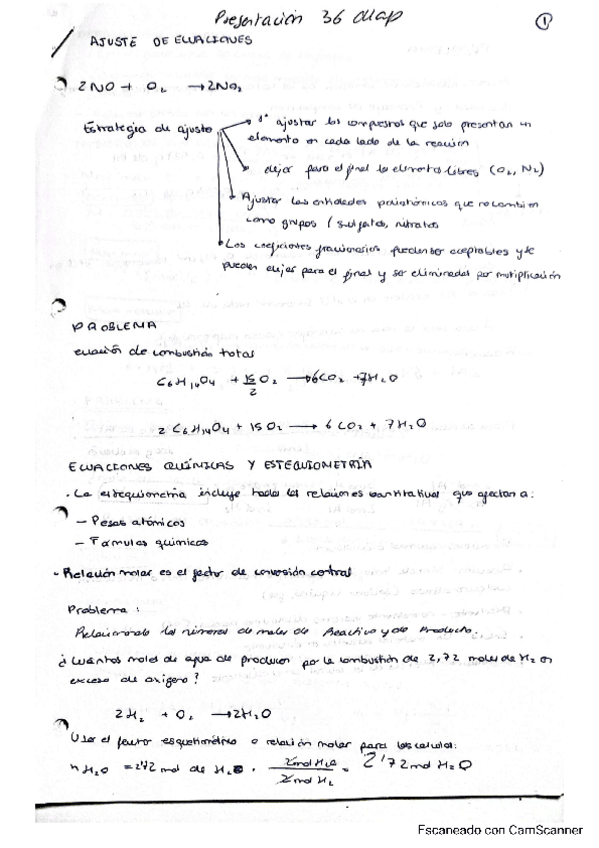 Presentación 36 diap
1
AJUSTE DE ECUACIONES
2NO + O₂ → 2NO₂
Estrategia de ajuste
1º ajustar los compuestos que solo presentan un
elemento en cada lado de la reacción
dejar para el final los elementos libres (O₂, N₂)
Ajustar las entidades poliatómicas que no cambien
como grupos (sulfatos, nitratos
Los coeficientes fraccionarios pueden ser aceptables y se
pueden dejar para el final y ser eliminados por multiplicación
PROBLEMA
ecuación de combustión total
C₆H₁₄O₄ + 15/2 O₂ → 6CO₂ + 7H₂O
2 C₆H₁₄O₄ + 15O₂ → 6 CO₂ + 7 H₂O
ECUACIONES QUÍMICAS Y ESTEQUIOMETRÍA
· La estequiometría incluye todas las relaciones cuantitativas que afectan a:
— Pesos atómicos
— Fórmulas químicas
- Relación molar es el factor de conversión central
Problema:
Relacionando los números de moles de Reactivo y de Producto.
¿Cuántos moles de agua de producen por la combustión de 2,72 moles de H₂ en
exceso de oxígeno?
2H₂ + O₂ → 2H₂O
Usar el factor o relación molar para los calculos:
n H₂O = 2'72 mol de H₂ · 2mol H₂O / 2mol H₂ = 2'72 mol H₂O
Escaneado con CamScanner